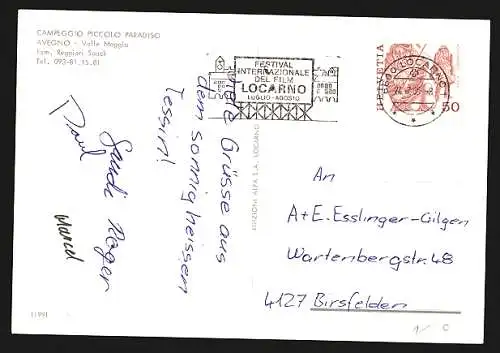 CAMPEGGIO PICCOLO PARADISO
AVEGNO - Valle Maggia
Fam. Reggiori Saudi
Tel. 093-81.15.81
FESTIVAL
INTERNAZIONALE
DEL FILM
LOCARNO
LUGLIO - AGOSTO
6600 LOCARNO
HELVETIA
50
Viele Grüsse aus
dem sonnig heissen
Tessin!
Sandi Roger
Paul
Marcel
EDIZIONI ALFA S.A. LOCARNO
An
A+E. Esslinger-Gilgen
Wartenbergstr. 48
4127 Birsfelden
11991